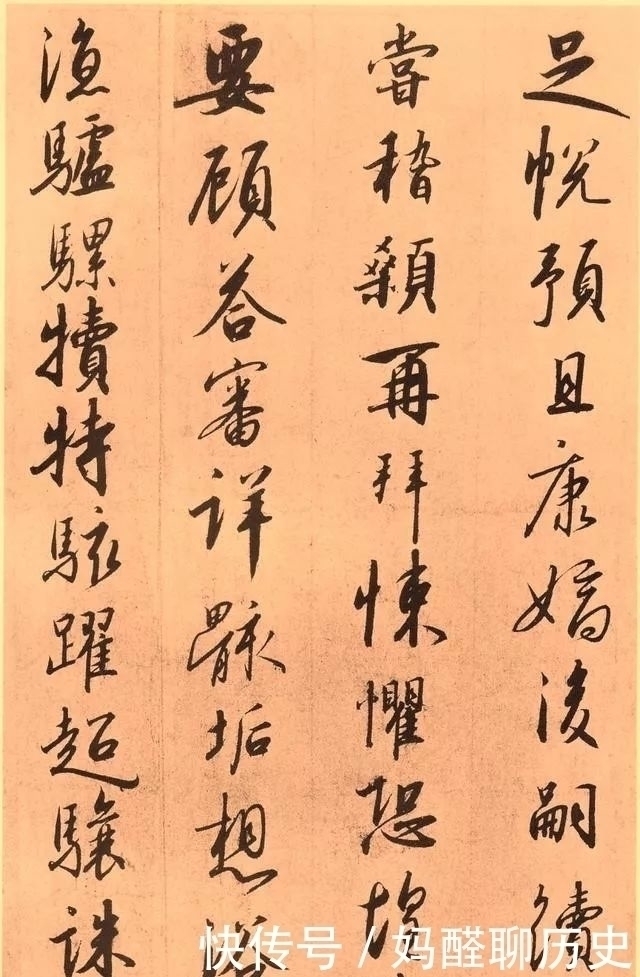 足悅預且康嫡後嗣續
嘗稽顙再拜悚懼恐
要顧荅審詳骸垢想
涼驢騾犢特駭躍超驤誅
快传号/妈醛聊历史